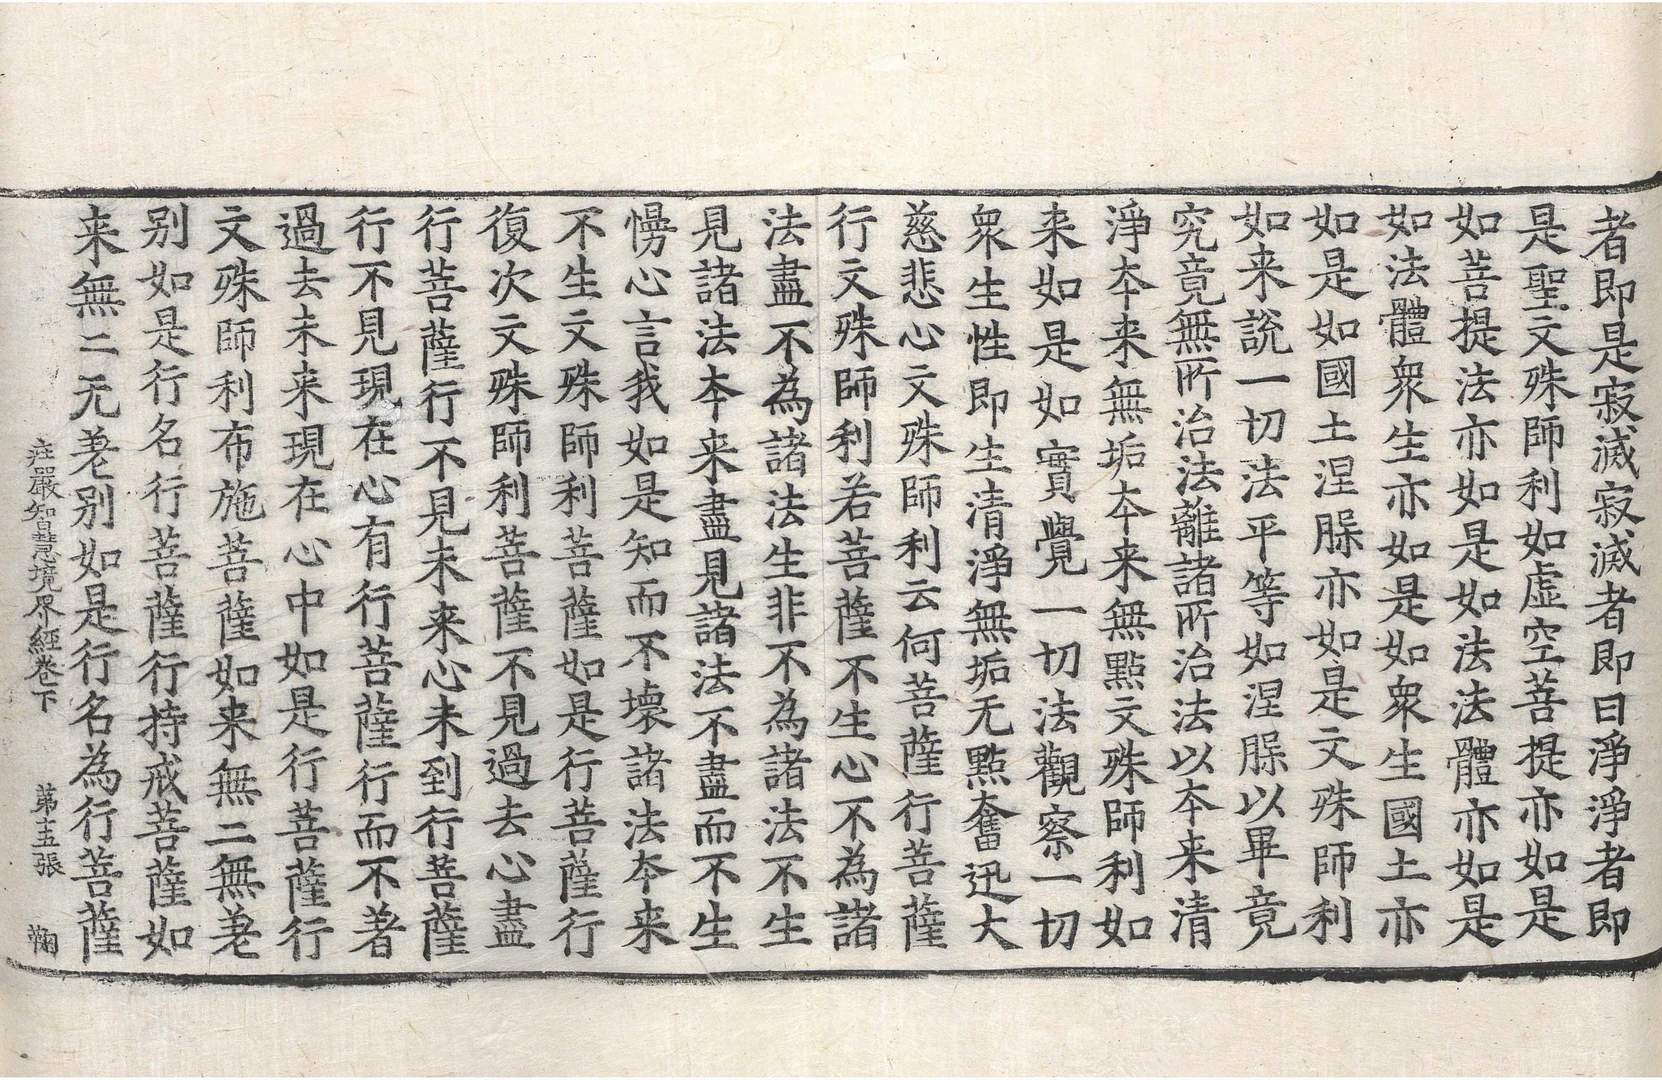 者即是寂滅寂滅者即曰淨淨者即
是聖文殊師利如虛空菩提亦如是
如菩提法亦如是如法法體亦如是
如法體衆生亦如是如衆生國土亦
如是如國土涅槃亦如是文殊師利
如来說一切法平等如涅槃以畢竟
究竟無所治法離諸所治法以夲来清
淨夲来無垢夲来無點文殊師利如
来如是如實覺一切法觀察一切
衆生性即生清淨無垢无點奮迅大
慈悲心文殊師利云何菩薩行菩薩
行文殊師利若菩薩不生心不為諸
法盡不為諸法生非不為諸法不生
見諸法夲来盡見諸法不盡而不生
慢心言我如是知而不壞諸法夲来
不生文殊師利菩薩如是行菩薩行
復次文殊師利菩薩不見過去心盡
行菩薩行不見未来心未到行菩薩
行不見現在心有行菩薩行而不著
過去未来現在心中如是行菩薩行
文殊師利布施菩薩如来無二無差
别如是行名行菩薩行持戒菩薩如
来無二无差别如是行名為行菩薩
莊嚴智慧境界經卷下 第十五張 鞠